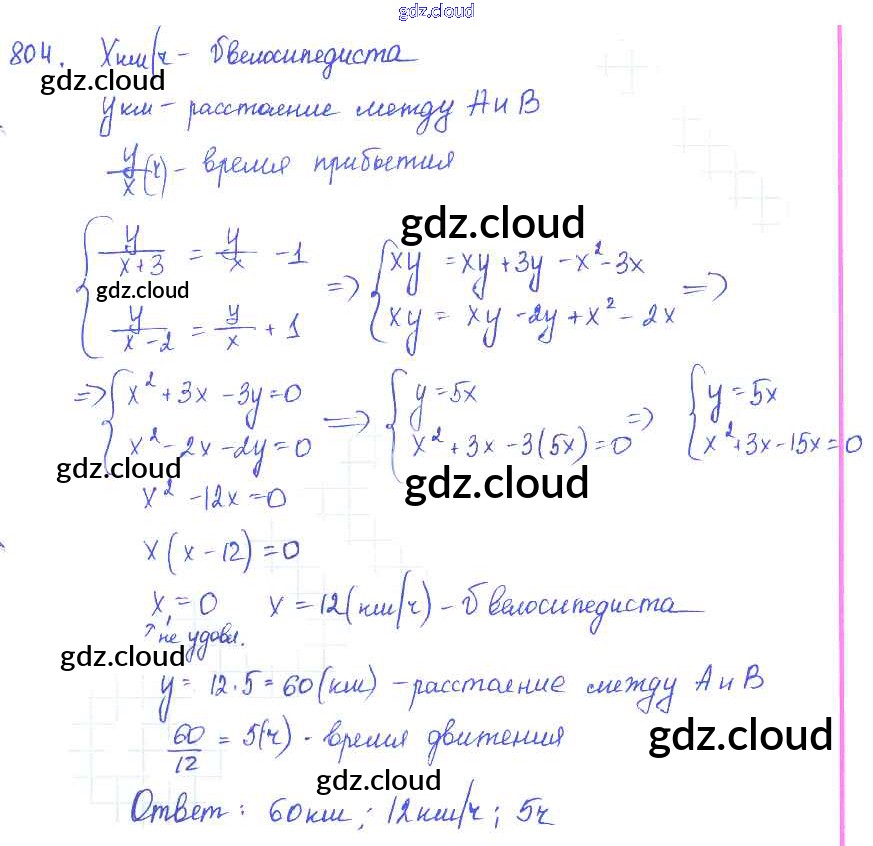 gdz.cloud
804. X км/ч - υ велосипедиста
gdz.cloud
y км - расстояние между A и B
y/x (ч) - время прибытия
gdz.cloud
{ y/(x+3) = y/x - 1 => { xy = xy + 3y - x² - 3x =>
gdz.cloud
{ y/(x-2) = y/x + 1 { xy = xy - 2y + x² - 2x
=> { x² + 3x - 3y = 0 => { y = 5x => { y = 5x
{ x² - 2x - 2y = 0 { x² + 3x - 3(5x) = 0 { x² + 3x - 15x = 0
gdz.cloud gdz.cloud
x² - 12x = 0
x(x - 12) = 0
x₁ = 0 x = 12 (км/ч) - υ велосипедиста
↑ не удовл.
gdz.cloud
y = 12·5 = 60 (км) - расстояние между A и B
60/12 = 5(ч) - время движения
gdz.cloud
gdz.cloud
Ответ: 60км; 12км/ч; 5ч